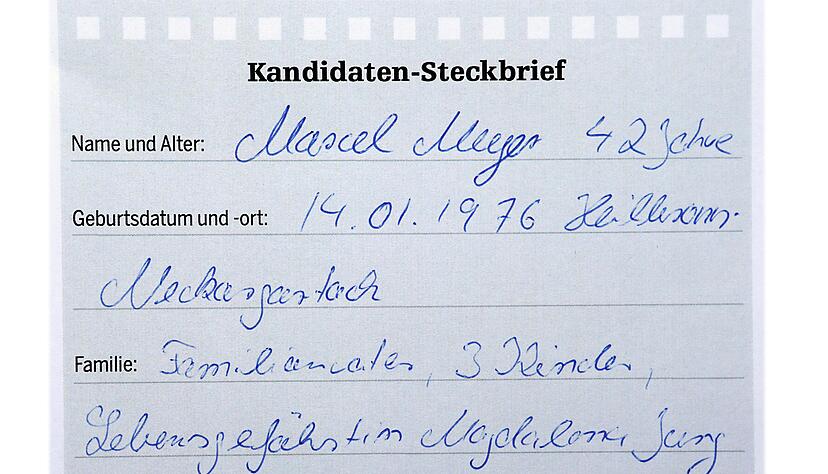 Kandidaten-Steckbrief
Name und Alter: Marcel Meyer 42 Jahre
Geburtsdatum und -ort: 14.01.1976 Heilbronn-
Neckargartach
Familie: Familienvater, 3 Kinder,
Lebensgefährtin Magdalena Jung